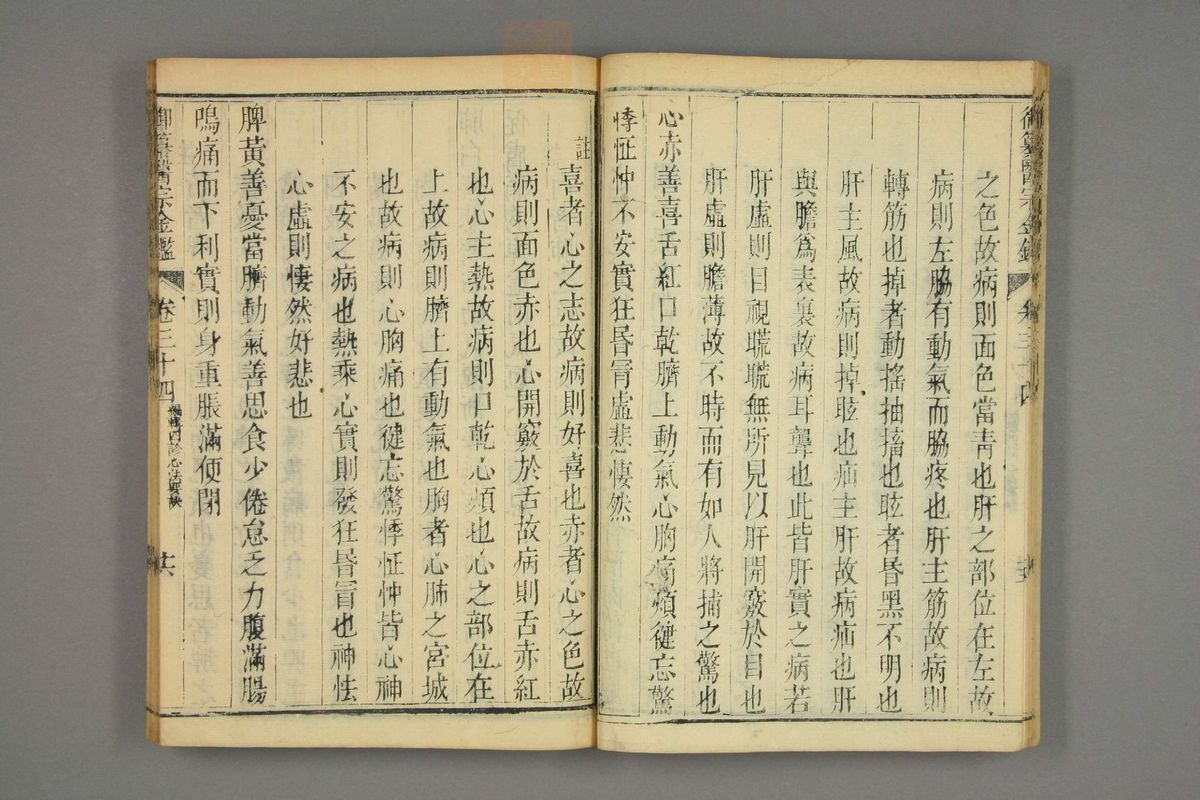 御纂醫宗金鑑 卷三十四
之色故病則面色當青也肝之部位在左故
病則左脇有動氣而脇疼也肝主筋故病則
轉筋也掉者動搖抽搐也眩者昏黑不明也
肝主風故病則掉眩也疝主肝故病疝也肝
與膽爲表裏故病耳聾也此皆肝實之病若
肝虛則目視䀮䀮無所見以肝開竅於目也
肝虛則膽薄故不時而有如人將捕之驚也
心赤善喜舌紅口乾臍上動氣心胸痛煩健忘驚
悸怔忡不安實狂昏冐虛悲悽然
註喜者心之志故病則好喜也赤者心之色故
病則面色赤也心開竅於舌故病則舌赤紅
也心主熱故病則口乾心煩也心之部位在
上故病則臍上有動氣也胸者心肺之宮城
也故病則心胸痛也健忘驚悸怔忡皆心神
不安之病也熱乘心實則發狂昏冐也神怯
心虛則悽然好悲也
脾黃善憂當臍動氣善思食少倦怠乏力腹滿腸
鳴痛而下利實則身重脹滿便閉
御纂醫宗金鑑 卷三十四 編輯四診心法要訣 六